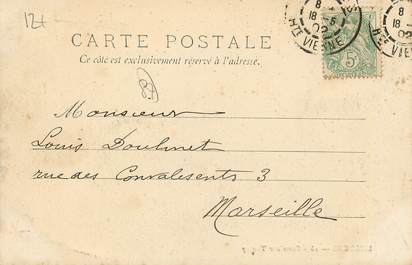 12+
CARTE POSTALE
Ce côté est exclusivement réservé à l'adresse.
8
18 -5
02
HTE VIENNE
8
18
02
Hte
5c
Monsieur
Louis Doulmet
rue des Convalesents 3
Marseille